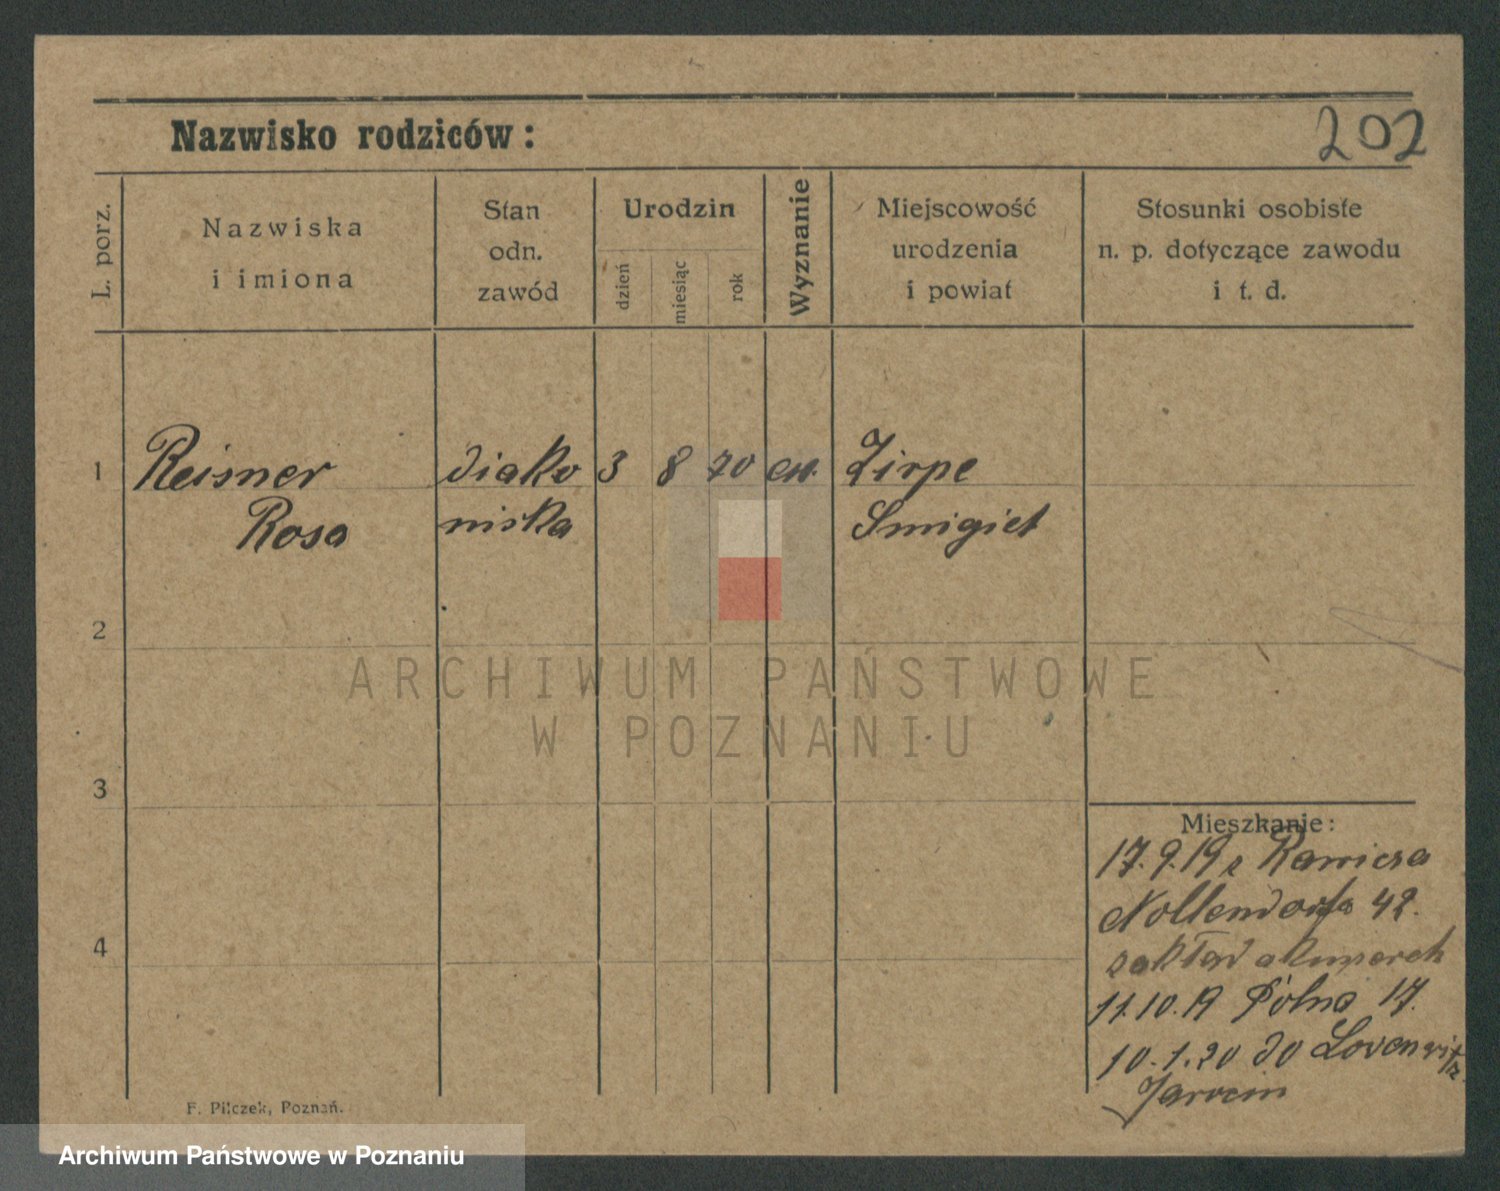 Nazwisko rodziców:
202
L. porz.
Nazwiska
i imiona
Stan
odn.
zawód
Urodzin
dzień
miesiąc
rok
Wyznanie
Miejscowość
urodzenia
i powiat
Stosunki osobiste
n. p. dotyczące zawodu
i t. d.
1 Reisner diako 3 8 70 ew. Zirpe
Rosa niska Smigiel
2
ARCHIWUM PAŃSTWOWE
W POZNANIU
3
Mieszkanie:
17.9.19 z Rawicza
Nollendorfa 42.
4
zakład akuszerek
11.10.19 Polna 17.
10.1.20 do
Jarocin
F. Pilczek, Poznań.
Archiwum Państwowe w Poznaniu